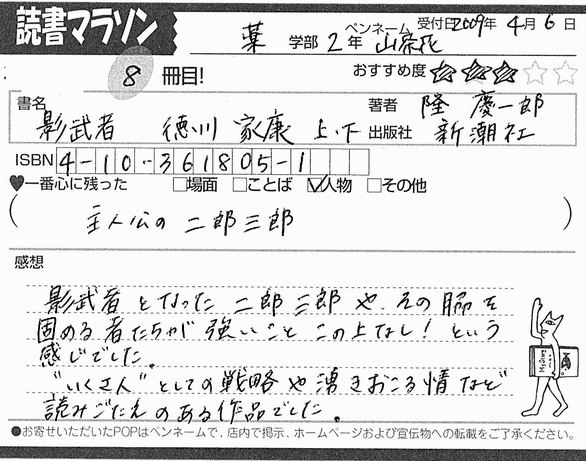 読書マラソン
薬 学部 2年 ペンネーム 山茶花 受付日2009年4月6日
8 冊目! おすすめ度 ★★★☆☆
書名 影武者 徳川家康 上・下
著者 隆 慶一郎
出版社 新潮社
ISBN 4-10-361805-1
♥一番心に残った □場面 □ことば ☑人物 □その他
(主人公の二郎三郎)
感想
影武者となった二郎三郎や、その脇を
固める者たちが強いことこの上なし!という
感じでした。
"いくさ人"としての戦略や湧きおこる情など
読みごたえのある作品でした。
●お寄せいただいたPOPはペンネームで、店内で掲示、ホームページおよび宣伝物への転載をご了承ください。